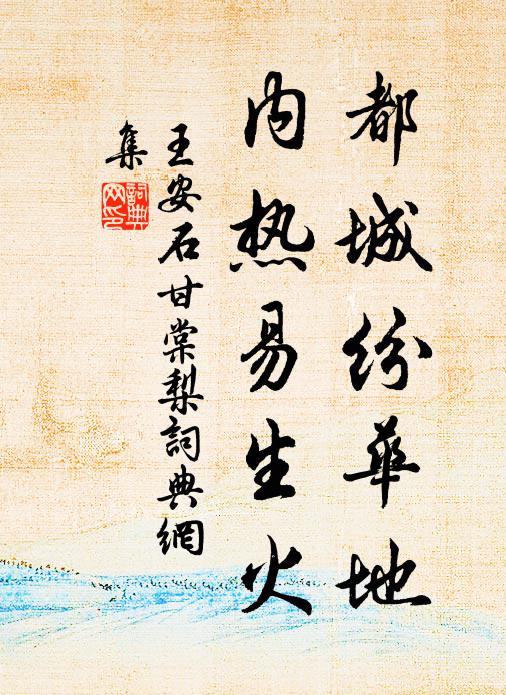 都城纷華地
内热易生火
王安石甘棠梨詞典網
集
詞典
网印